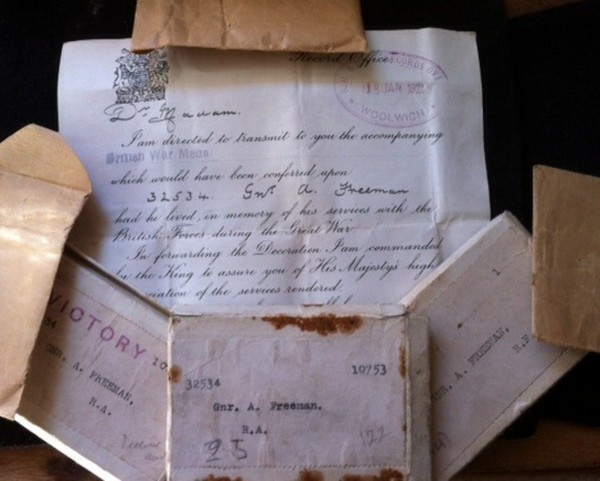 Record Office
RECORD OFF
18 JAN 192
WOOLWICH
Dr Madam.
I am directed to transmit to you the accompanying
British War Medal
which would have been conferred upon
32534. Gnr. A. Freeman
had he lived, in memory of his services with the
British Forces during the Great War.
In forwarding the Decoration I am commanded
by the King to assure you of His Majesty's high
ciation of the services rendered.
VICTORY
GNR. A. FREEMAN,
R.A.
32534 10753
Gnr. A. Freeman.
R.A.
25
122
1
GNR. A. FREEMAN,